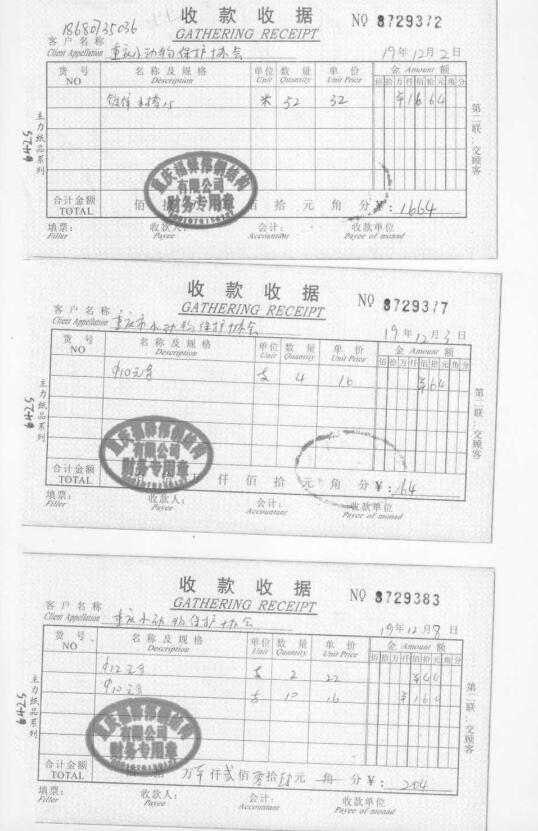 18680735036
收款收据 NO 8729372
GATHERING RECEIPT
客户名称 重庆小动物保护协会 19年12月2日
Client Appellation
货号 名称及规格 单位 数量 单价 金 Amount 额
NO Description Unit Quantity Unit Price 佰拾万仟佰拾元角分
镀锌水槽15 米 52 32 ¥1664
合计金额 佰拾 佰拾元角分 ¥:1664
TOTAL
填票: 收款人: 会计: 收款单位
Filler Payee Accountant Payee of monad
主力纸品系列 6425
第二联:交顾客
重庆福祥伟钢结构
有限公司
财务专用章
收款收据 NO 8729377
GATHERING RECEIPT
客户名称 重庆市小动物保护协会 19年12月3日
Client Appellation
货号 名称及规格 单位 数量 单价 金 Amount 额
NO Description Unit Quantity Unit Price 佰拾万仟佰拾元角分
Φ10元 支 4 16 ¥64
合计金额 仟佰拾元角分 ¥:164
TOTAL
填票: 收款人: 会计: 收款单位
Filler Payee Accountant Payee of monad
主力纸品系列 6425
第二联:交顾客
重庆福祥伟钢结构
有限公司
财务专用章
收款收据 NO 8729383
GATHERING RECEIPT
客户名称 重庆小动物保护协会 19年12月8日
Client Appellation
货号 名称及规格 单位 数量 单价 金 Amount 额
NO Description Unit Quantity Unit Price 佰拾万仟佰拾元角分
Φ12元 支 2 22 ¥44
Φ10元 支 10 16 ¥160
合计金额 万 仟贰佰零拾肆元角分 ¥:204
TOTAL
填票: 收款人: 会计: 收款单位
Filler Payee Accountant Payee of monad
主力纸品系列 6425
第二联:交顾客
重庆福祥伟钢结构
有限公司
财务专用章